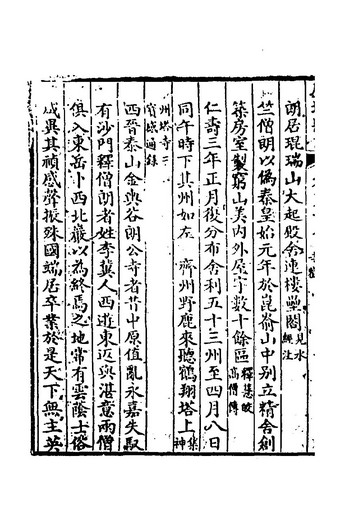 朗居琨瑞山大起殿舎連樓壘閣見水經注
竺僧朗以偽秦皇始元年於崑崙山中别立精舎創
築房室製窮山美内外屋宇數十餘區釋慧皎高僧傳
仁壽三年正月復分布舎利五十三州至四月八日
同午時下其州如左 齊州野鹿來聽鶴翔塔上集神
州塔寺三寳感通録
西晉泰山金輿谷朗公寺者昔中原值亂永嘉失馭
有沙門釋僧朗者姓李冀人西遊東返與湛意兩僧
俱入東岳卜西北巖以為終焉之地常有雲蔭士俗
咸異其禎感聲振殊國端居卒業於是天下無主英